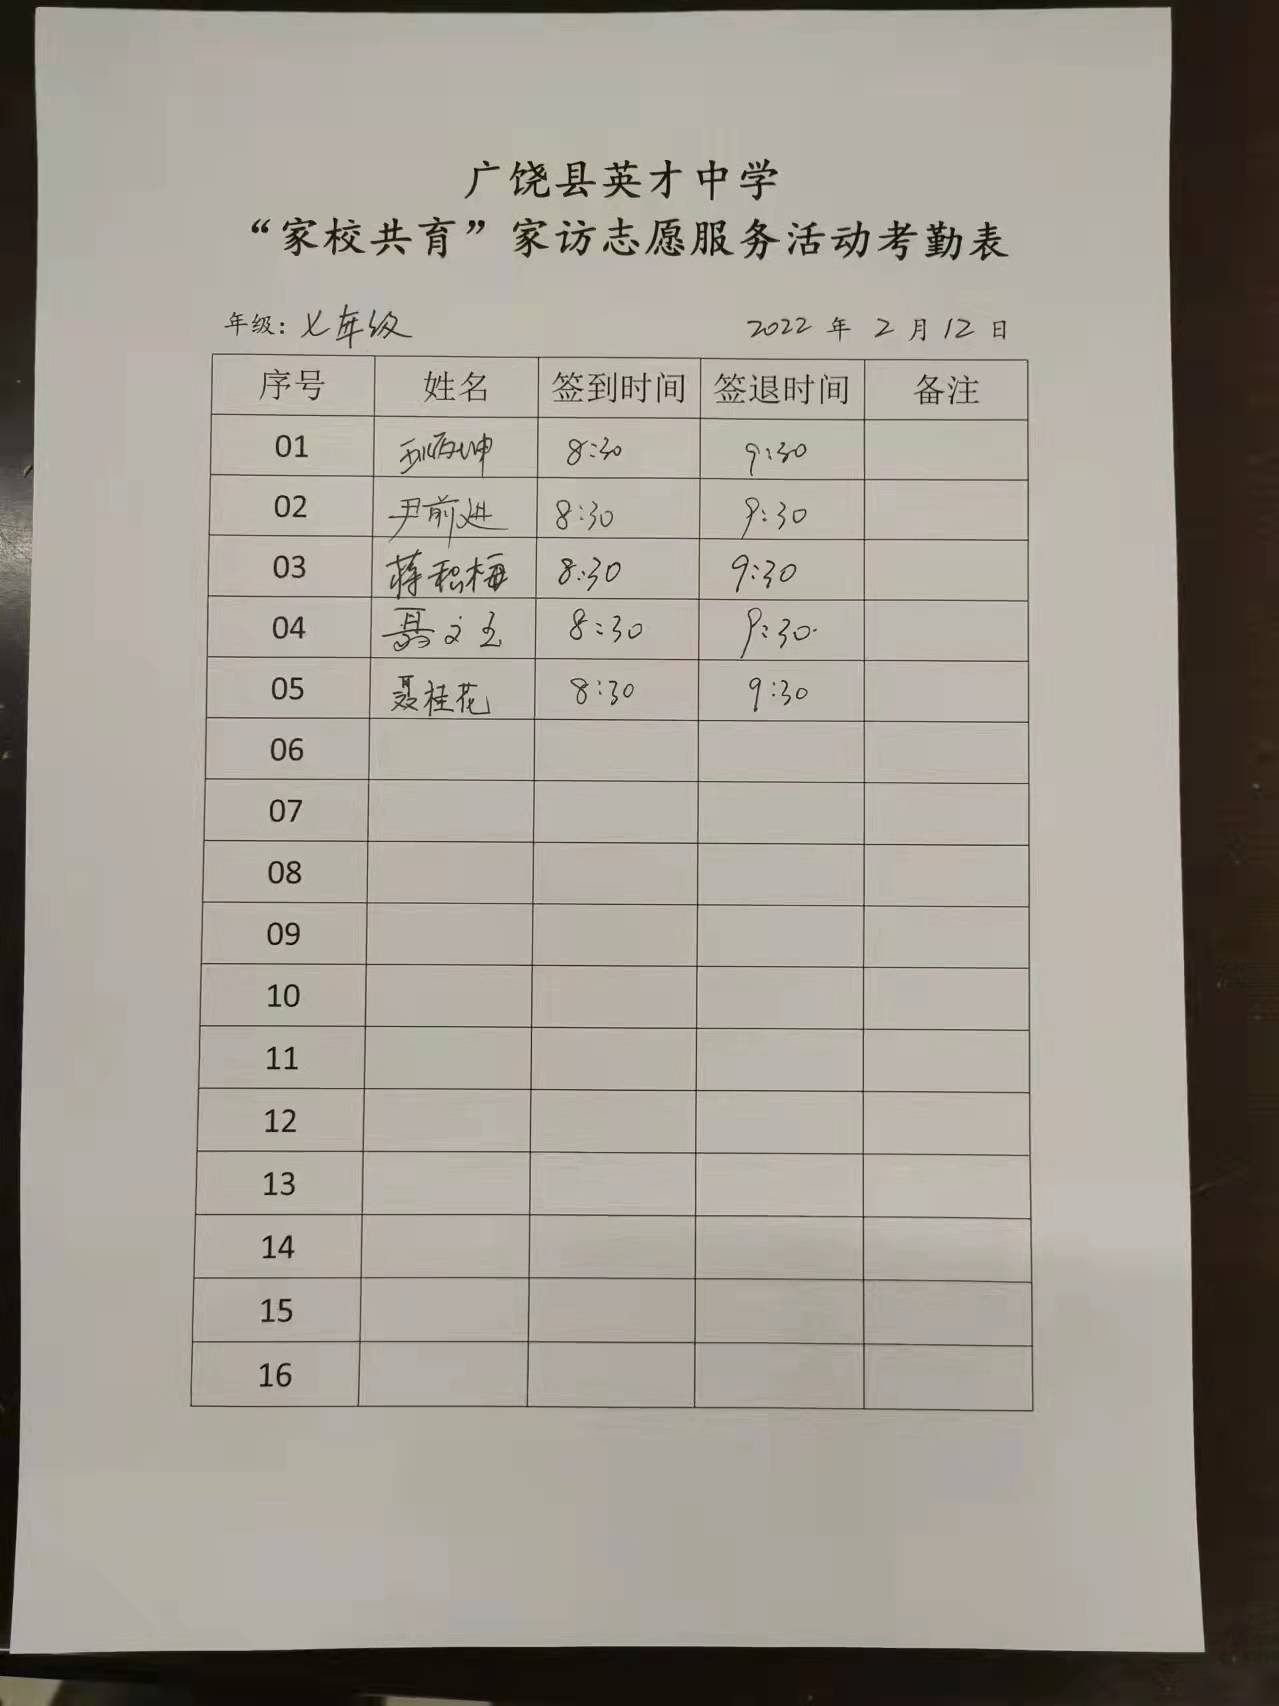 广饶县英才中学
“家校共育”家访志愿服务活动考勤表
年级：七年级 2022 年 2 月 12 日
序号 姓名 签到时间 签退时间 备注
01 8:30 9:30
02 尹前进 8:30 9:30
03 蒋积梅 8:30 9:30
04 聂文玉 8:30 9:30
05 聂桂花 8:30 9:30
06
07
08
09
10
11
12
13
14
15
16